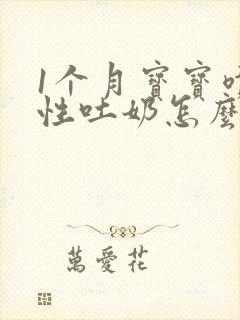 1个月寶寶
性吐奶怎麼
萬愛花